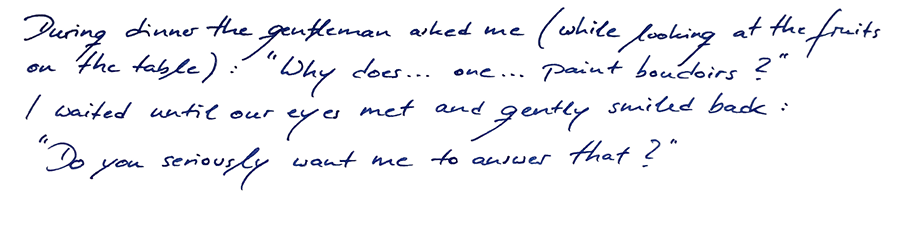 During dinner the gentleman asked me (while looking at the fruits
on the table): "Why does... one... paint boudoirs?"
I waited until our eyes met and gently smiled back:
"Do you seriously want me to answer that?"